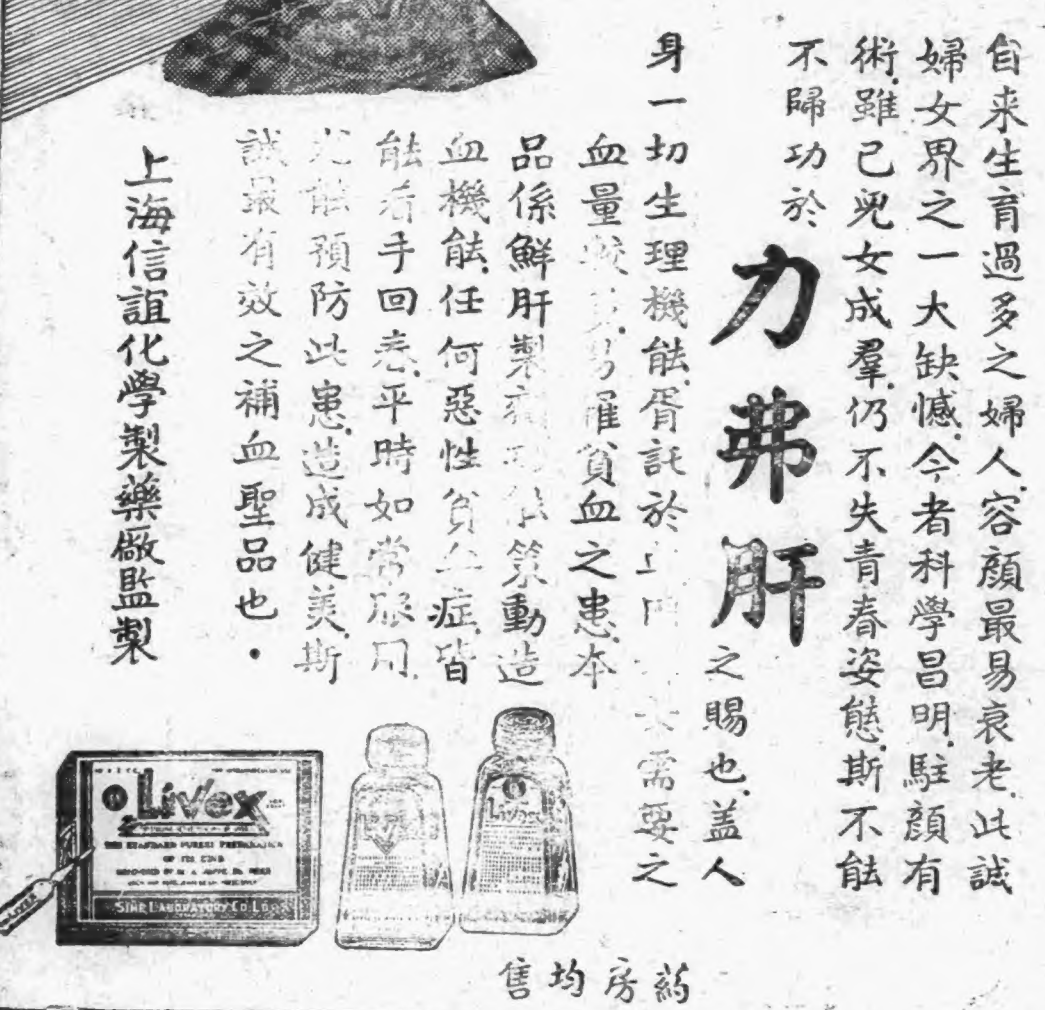 自来生育過多之婦人，容顏最易衰老，此誠
婦女界之一大缺憾，今者科學昌明，駐顏有
術，雖已兒女成羣，仍不失青春姿態，斯不能
不歸功於
力弗肝
之賜也，蓋人
身一切生理機能，胥託於 需要之
血量 易罹貧血之患，本
品係鮮肝製 策動造
血機能，任何惡性貧血症，皆
能着手回春，平時如常服用，
尤能預防此患，造成健美，斯
誠最有效之補血聖品也．
上海信誼化學製藥廠監製
Livex
THE STANDARD PUREST PREPARATION
OF ITS KIND
SINE LABORATORY CO
Livex
售均房葯